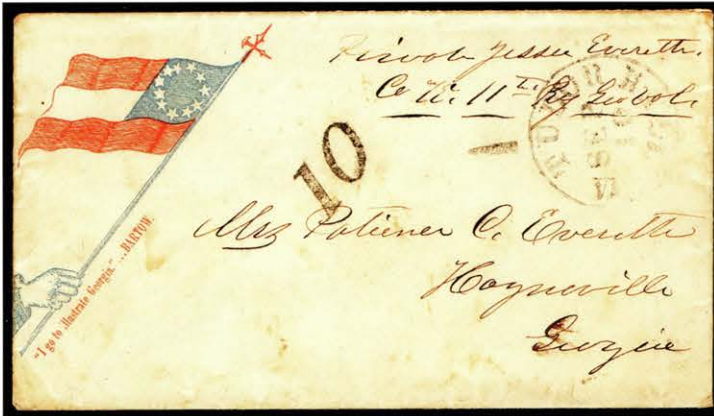 Jessee Everette.
Co K. 11th Rg Geo Vol.
10
Mrs Patience C. Everette
Hayneville
Georgia
"I go to illustrate Georgia." ...BARTOW.